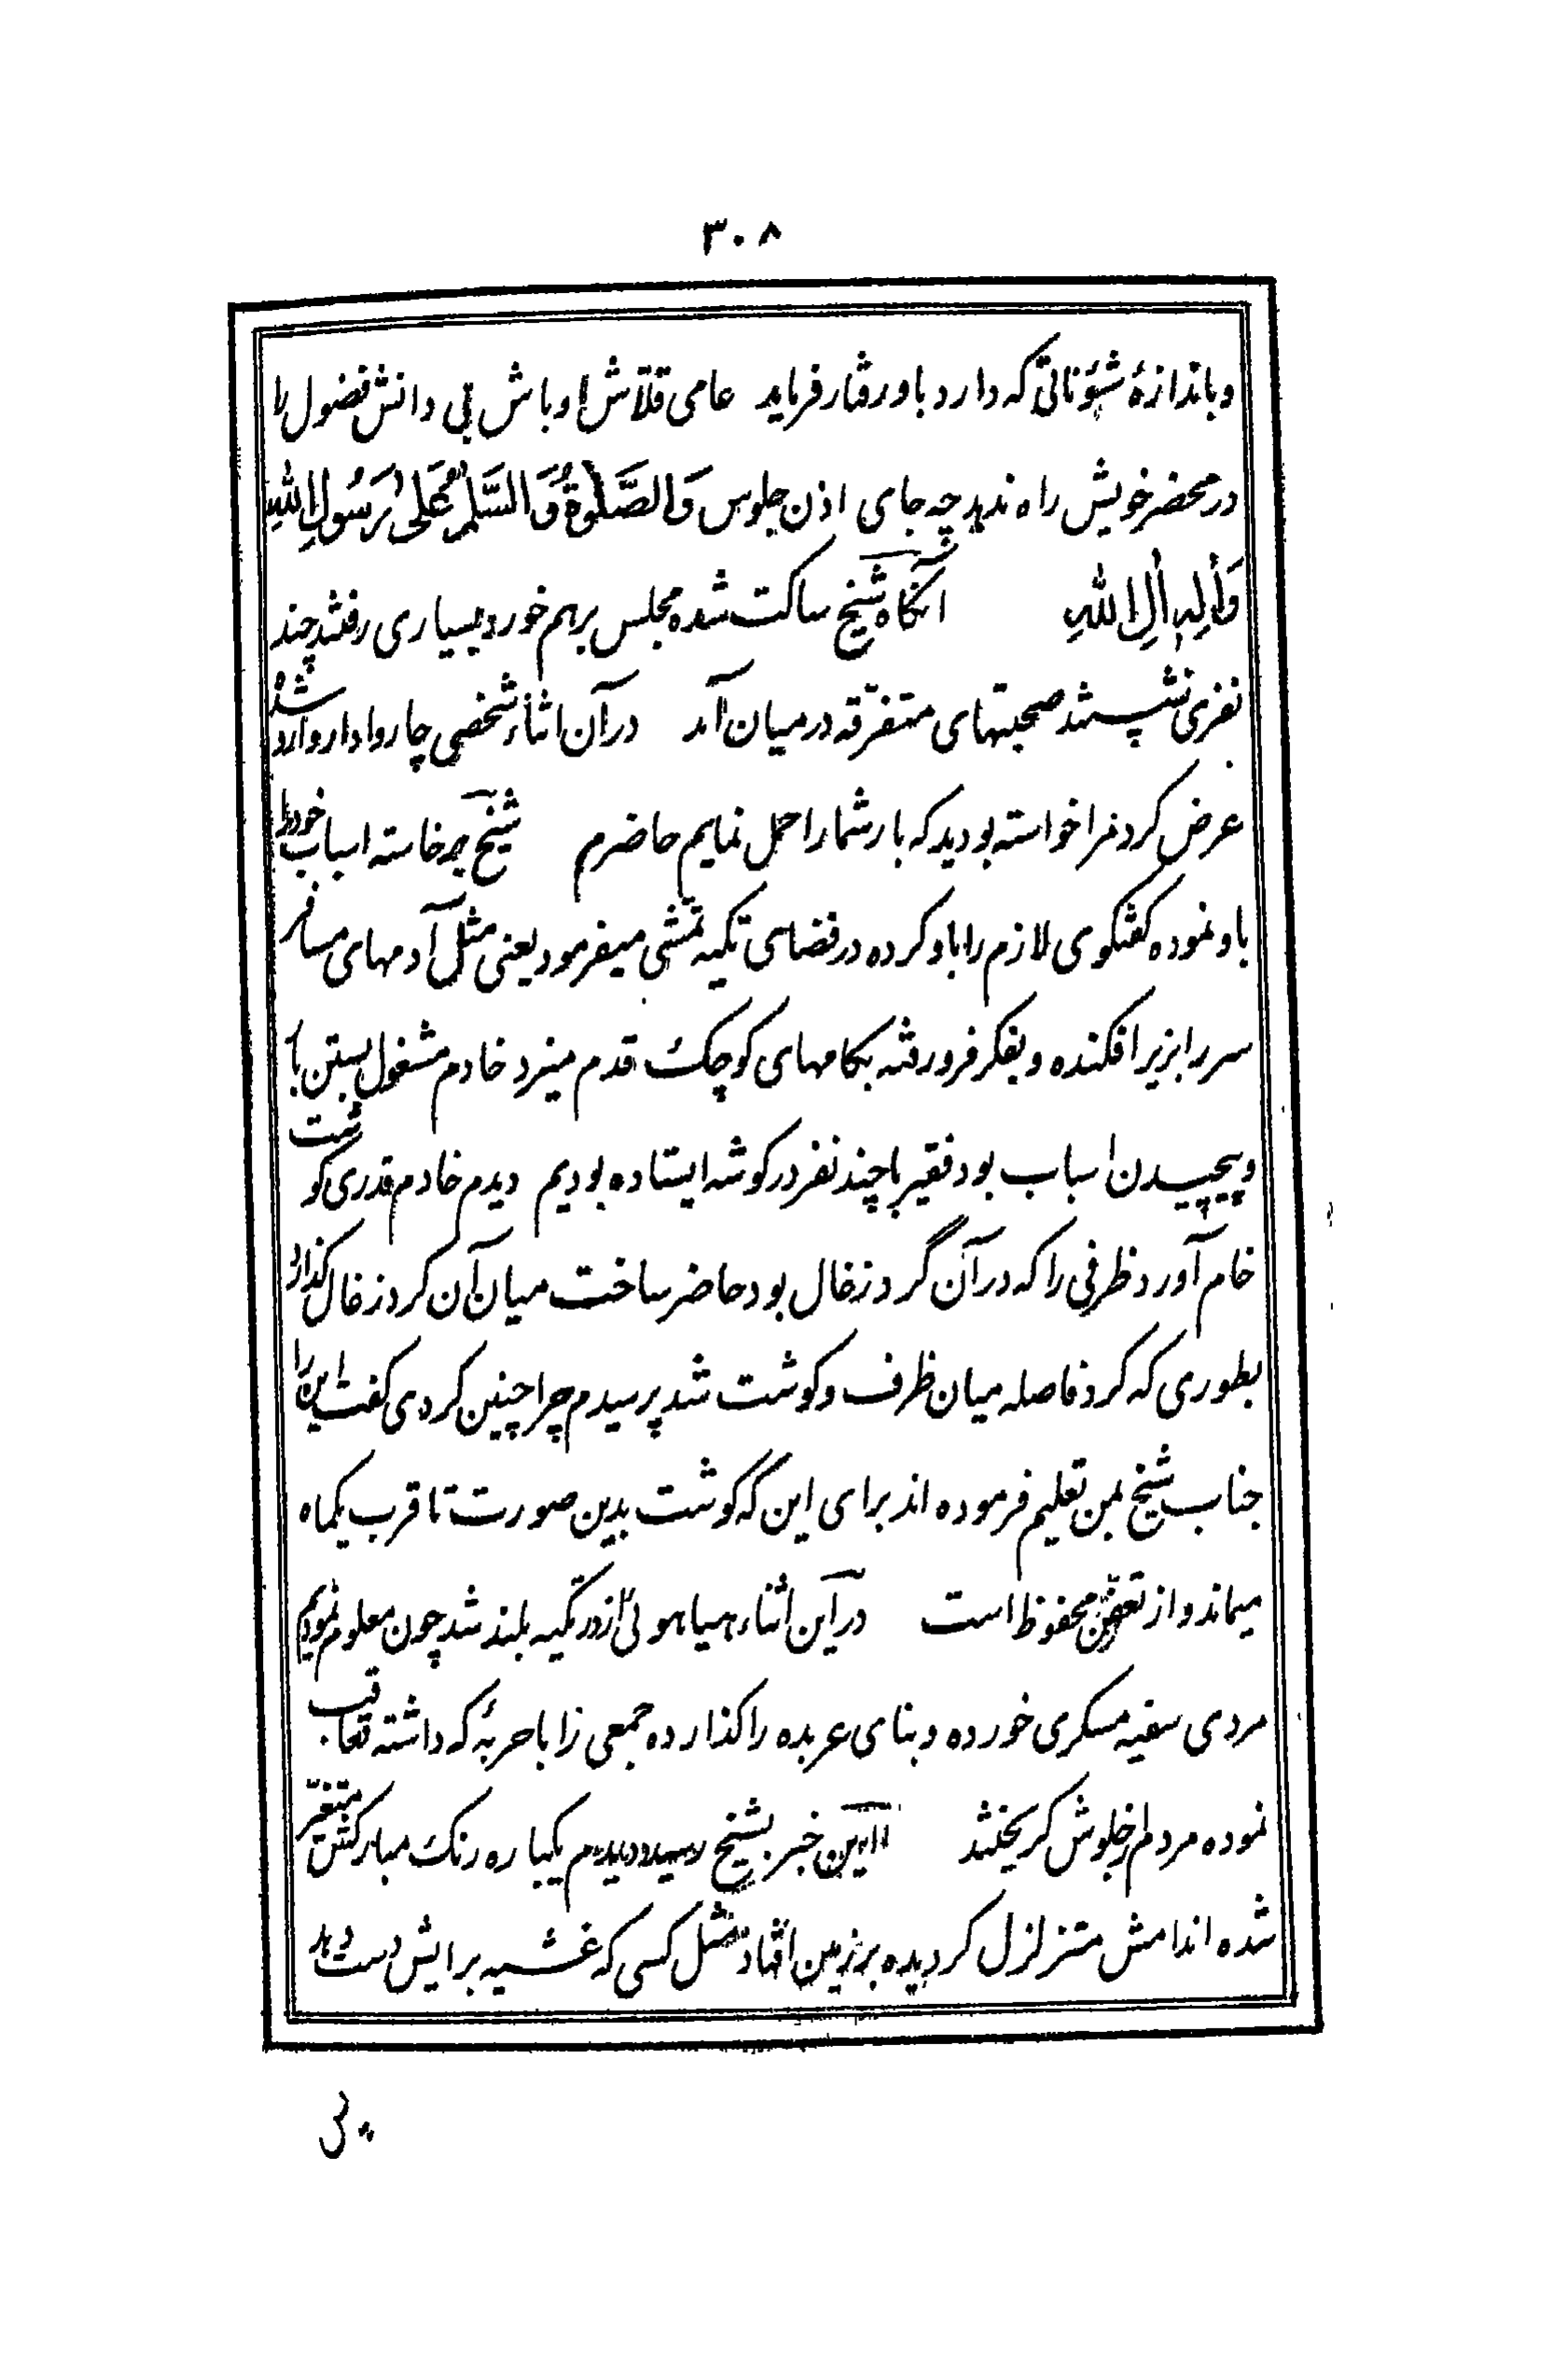 ۳۰۸
و باندازهٔ شئوناتی که دارد باو رفتار فرماید عامی قلاّش اوباش بی دانش فضول را
در محضر خویش راه ندهد چه جای اذن جلوس وَالصَّلوةُ وَالسَّلامُ عَلی رَسُولِ اللهِ
وَالِهِ الِ اللهِ آنگاه شیخ ساکت شده مجلس برهم خورد بسیاری رفتند چند
نفری نشستند صحبتهای متفرّقه در میان آمد در آن اثناء شخصی چاروادار وارد شده
عرض کرد مرا خواسته بودید که بار شما را حمل نمایم حاضرم شیخ برخاسته اسباب خود را
باو نموده کفتکوی لازم را باو کرده در فضای تکیه تمشّی میفرمود یعنی مثل آدمهای مسافر
سر را بزیر افکنده و بفکر فرو رفته بکامهای کوچک قدم میزد خادم مشغول بستن بار
و پیچیدن اسباب بود فقیر با چند نفر در کوشه ایستاده بودیم دیدم خادم قدری کوشت
خام آورد ظرفی را که در آن گرد زغال بود حاضر ساخت میان آن کرد زغال کذارد
بطوری که کرد فاصله میان ظرف و کوشت شد پرسیدم چرا چنین کردی کفت این را
جناب شیخ بمن تعلیم فرموده اند برای این که گوشت بدین صورت تا قرب یکماه
میماند و از تعفّن محفوظ است در این اثناء هیاهوئی از در تکیه بلند شد چون معلوم نمودیم
مردی سفیه مسکری خورده و بنای عربده را کذارده جمعی را با حربهٔ که داشته تعاقب
نموده مردم از جلوش کریختند این خبر بشیخ رسید دیدم یکباره رنک مبارکش متغیّر
شده اندامش متزلزل کردیده بر زمین افتاد مثل کسی که غشیه برایش دست دهد